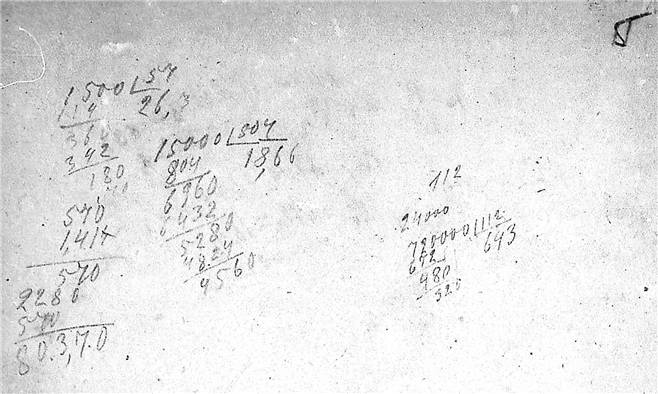 1,500 | 57
1,4 26,3
360
342
180
570
1,41x
570
2280
570
80.3,7.0
15000 | 804
804 18,66
6960
6432
5280
4824
4560
112
24000
720000 | 112
672 643
480
320